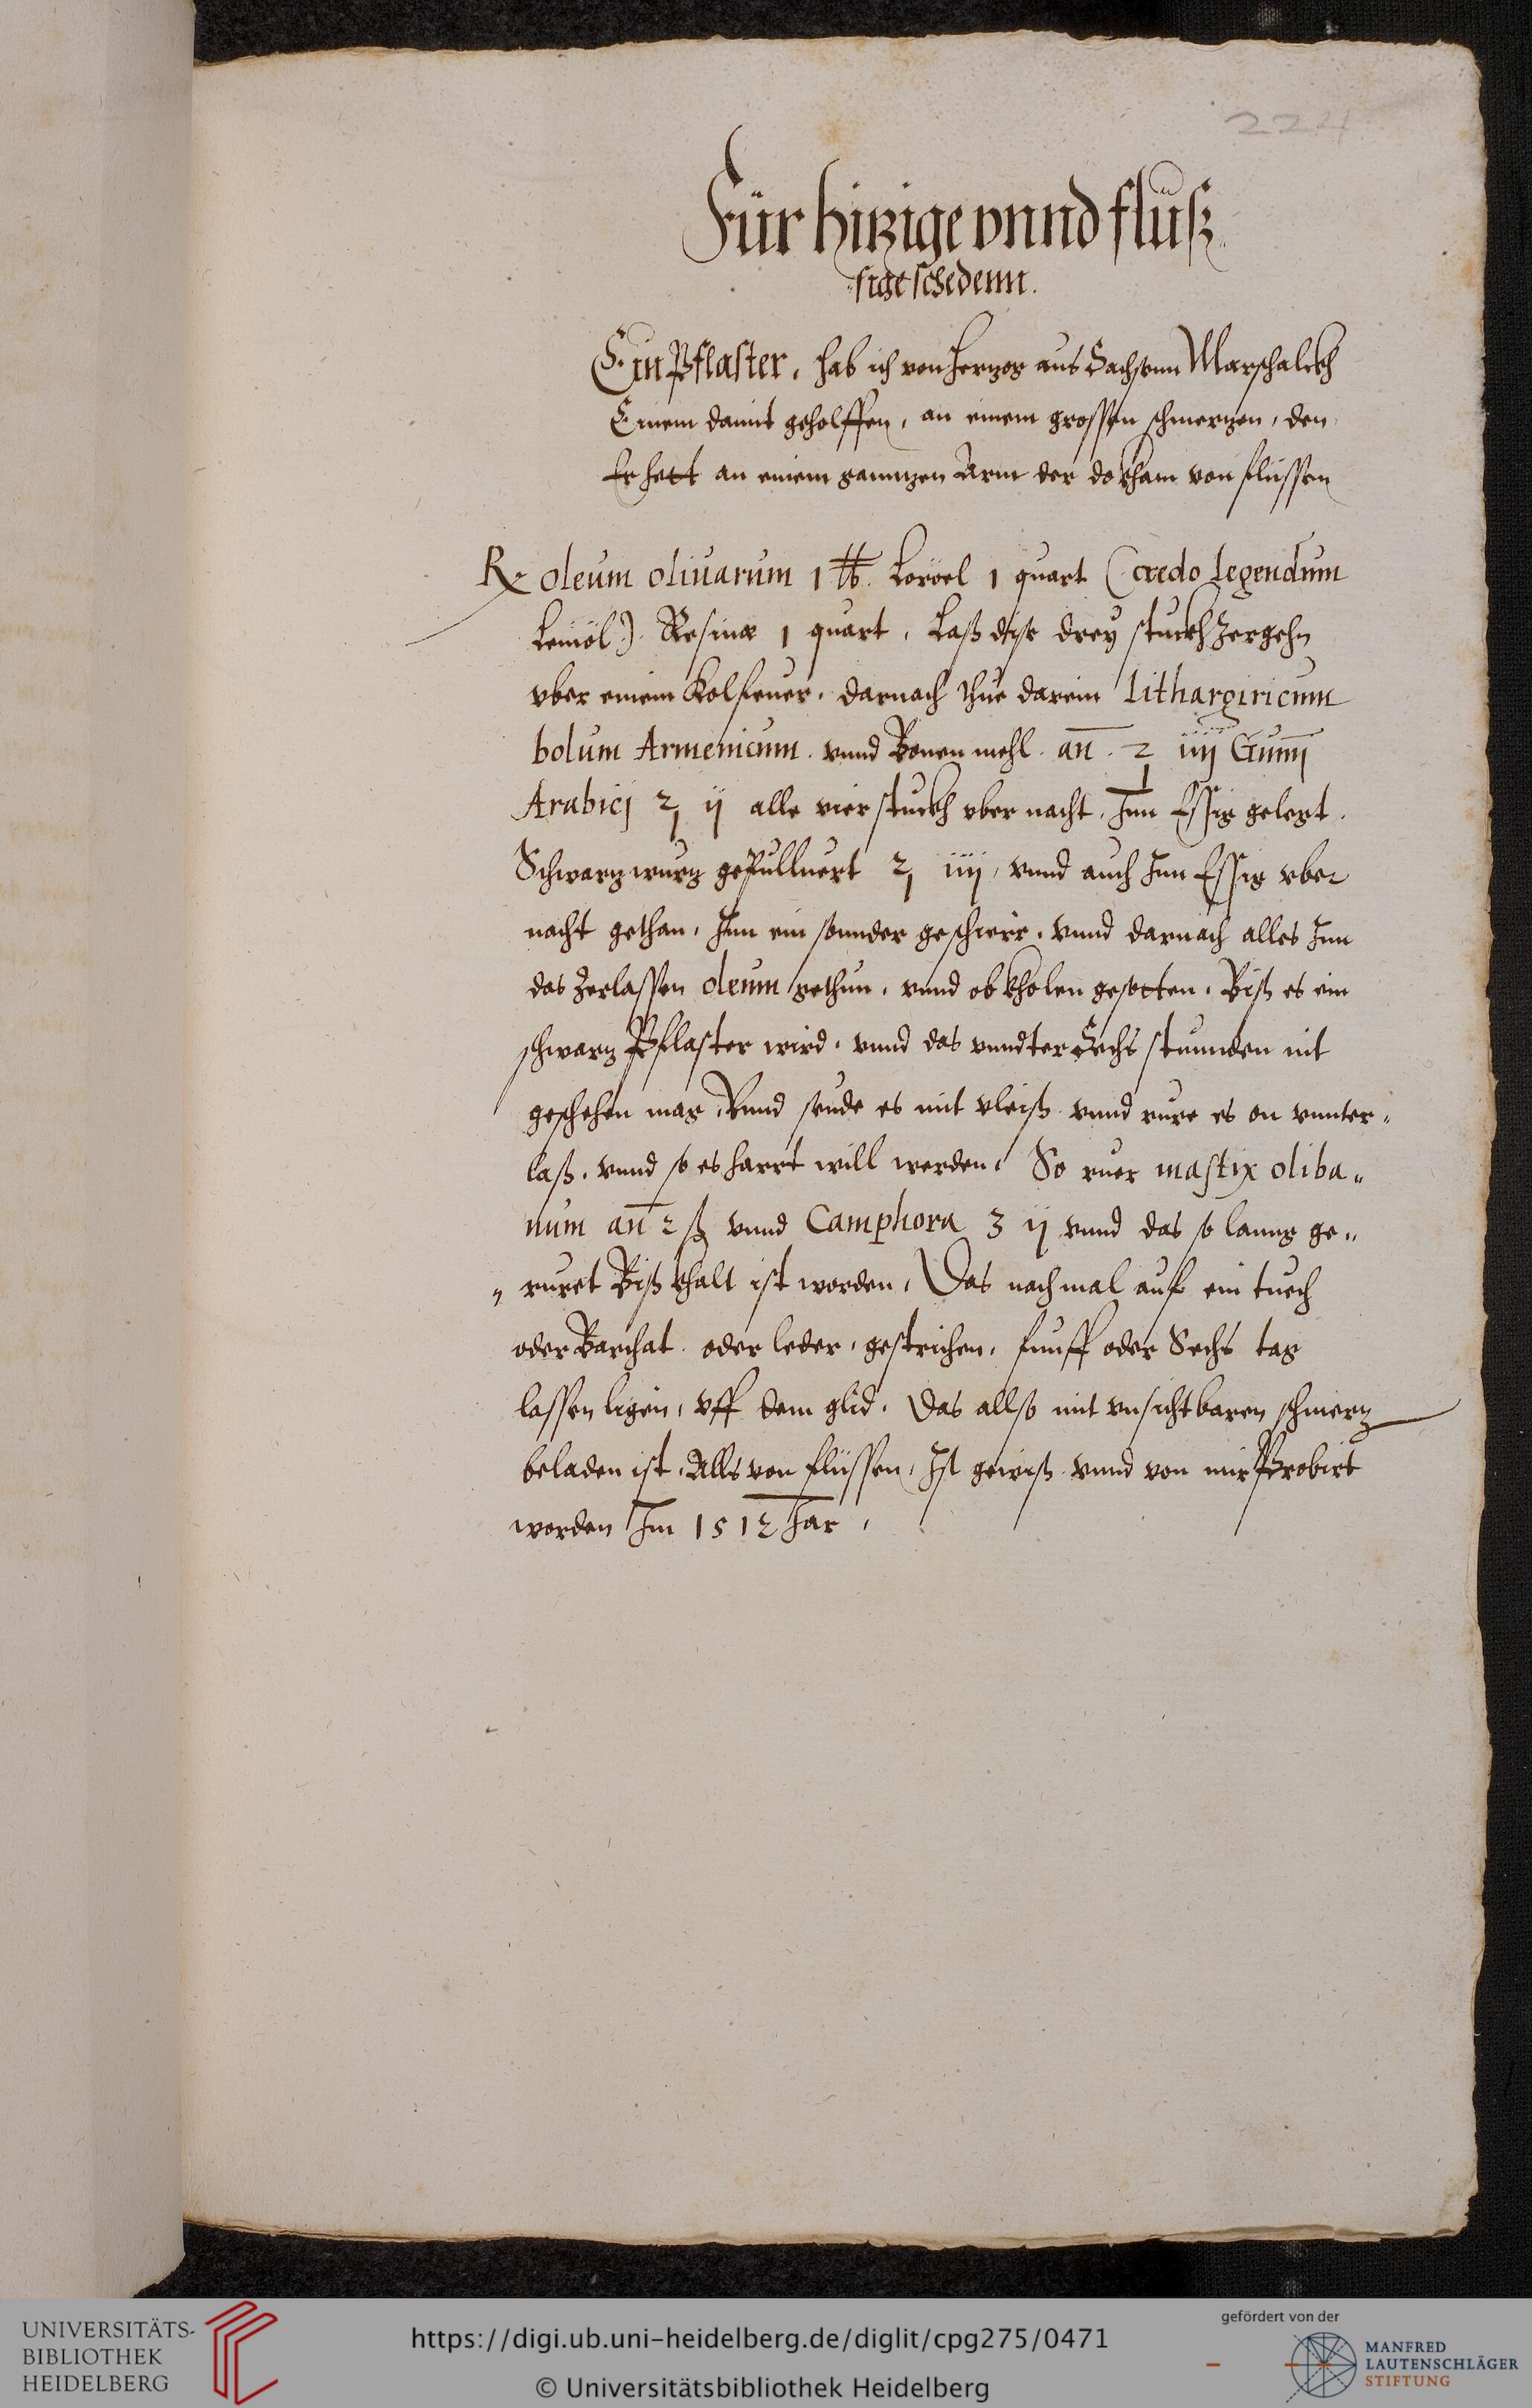 224
Für hitzige vnnd flüß„
„sige schedenn.
Ein Pflaster, hab ich von Hertzog aus Sachsenn Marschalckh
Einem damit geholffen, an einem grossen schmertzen, den
Er hett an einem ganntzen Arm der do kham von flüssen
R oleum oliuarum 1 ℔. Loröel 1 quart (credo legendum
Leinöl) Resinæ 1 quart, Laß dise drey stuckh zergehn
vber einem Kolfeuer, darnach thue darein Lithargiricum
bolum Armenicum. vnnd Bonen mehl. an̄. ℥ iiij Gum̄j
Arabicj ℥ ij alle vier stuckh vber nacht, Inn Essig gelegt.
Schwartzwurtz gepulluert ℥ iiij, vnnd auch Inn Essig vber
nacht gethan, Inn ein sonnder geschirr, vnnd darnach alles Inn
das Zerlassen oleum gethun, vnnd ob kholen gesotten, Biß es ein
schwartz Pflaster wird, vnnd das vnndter Sechs stunnden nit
geschehen mag, Vnnd seude es mit vleiß vnnd rure es on vnnter„
laß, vnnd so es harrt will werden, So ruer mastix oliba„
num an̄ ℥ ß vnnd Camphora ʒ ij vnnd das so lanng ge„
„ruret Biß khalt ist worden, Das nochmal auf ein tuech
oder Barchat oder leder, gestrichen, funff oder Sechs tag
lassen ligen, vff dem glid, Das allso mit vnsichtbaren schmertz
beladen ist, Alls von flüssen, Ist gewiß vnnd von mir Probirt
worden Im 1512 Jar,
UNIVERSITÄTS-
BIBLIOTHEK
HEIDELBERG
https://digi.ub.uni-heidelberg.de/diglit/cpg275/0471
© Universitätsbibliothek Heidelberg
gefördert von der
MANFRED
LAUTENSCHLÄGER
STIFTUNG